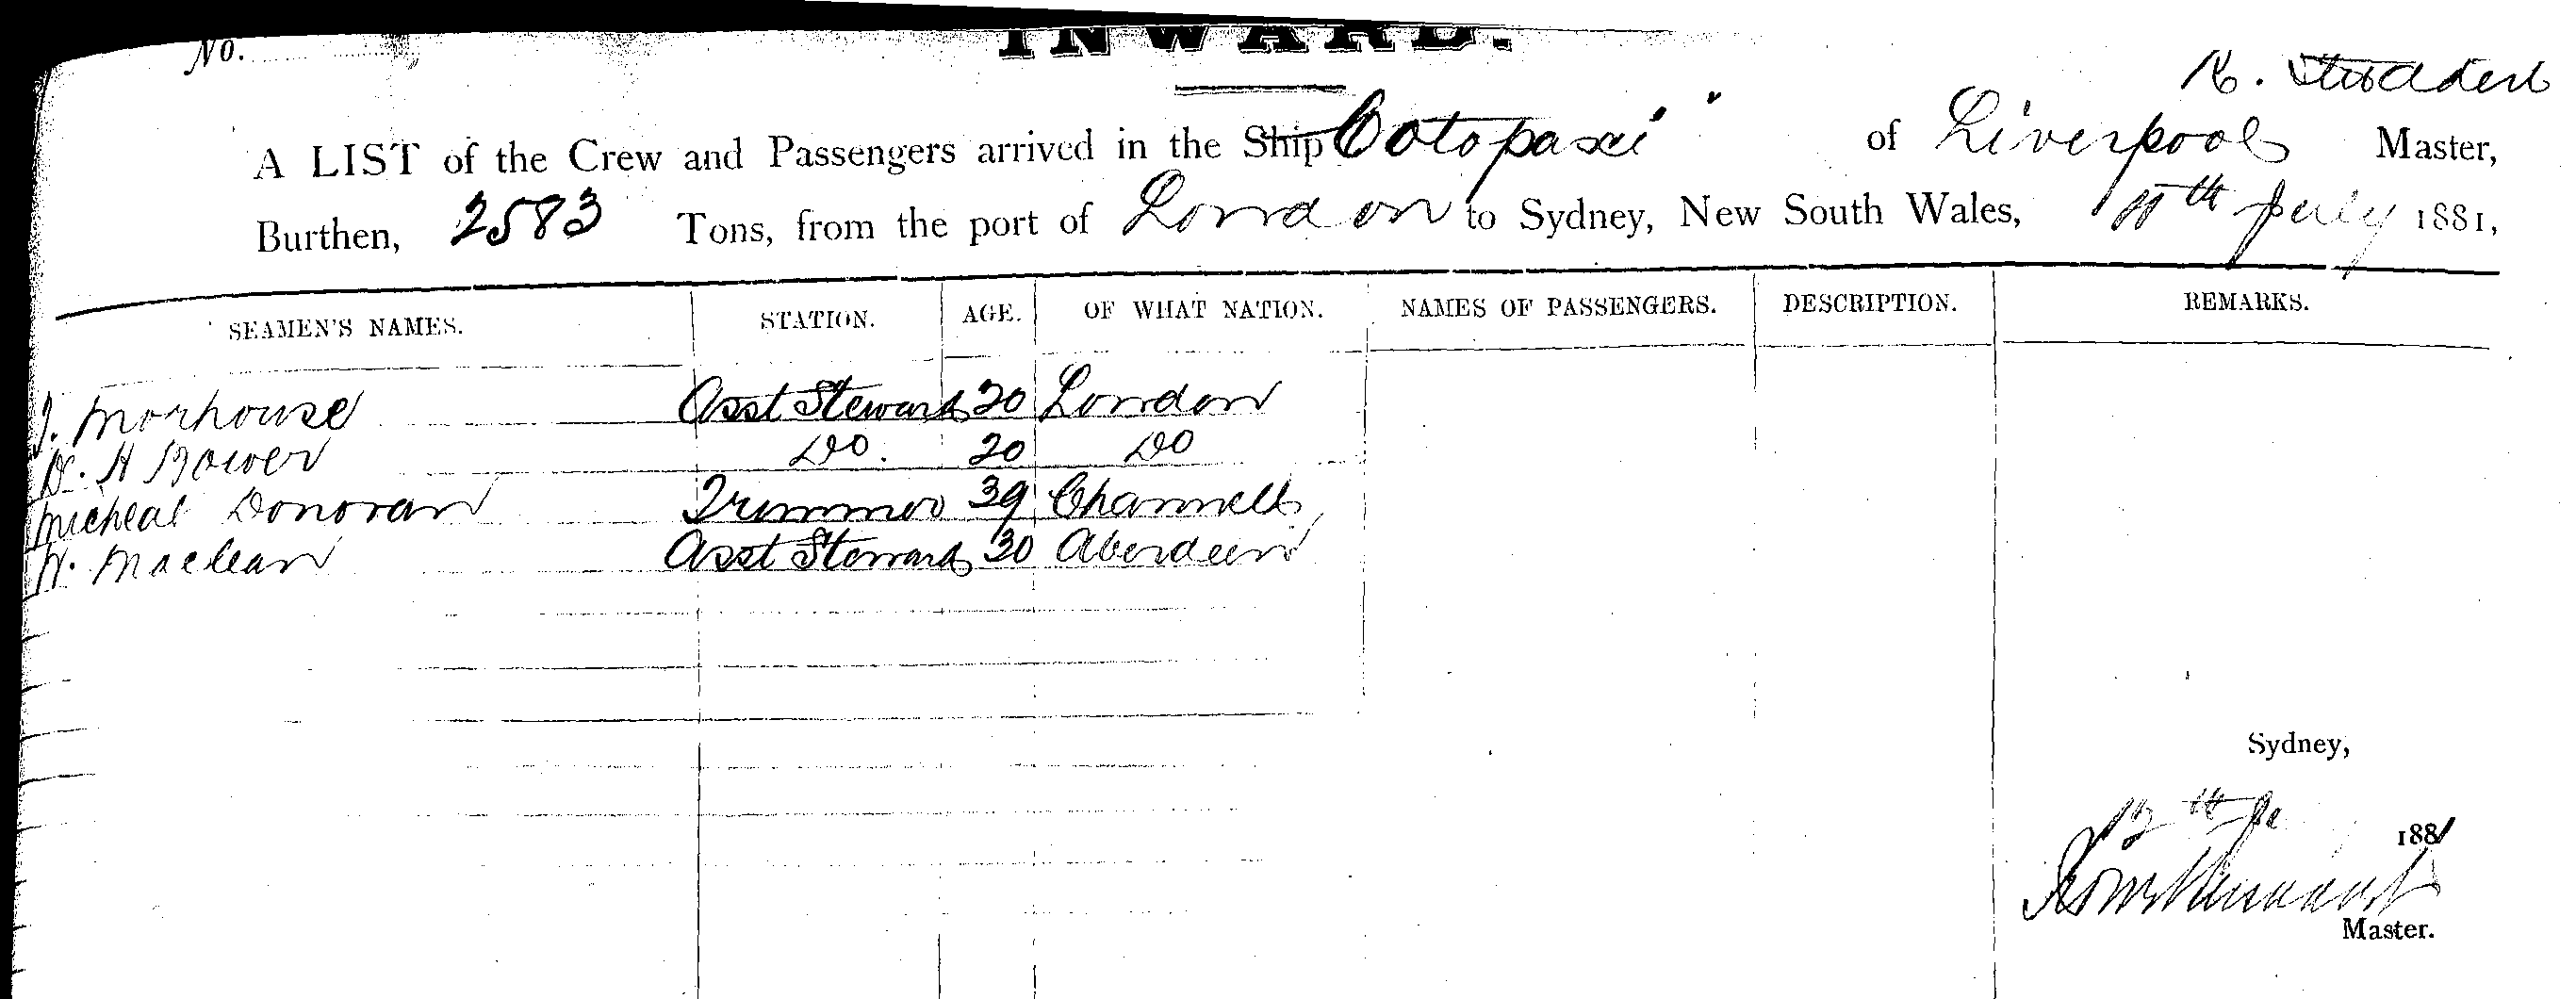 No.
INWARD.
A LIST of the Crew and Passengers arrived in the Ship Cotopaxi of Liverpool K. Studdert Master,
Burthen, 2583 Tons, from the port of London to Sydney, New South Wales, 11th July 1881,
SEAMEN'S NAMES. STATION. AGE. OF WHAT NATION. NAMES OF PASSENGERS. DESCRIPTION. REMARKS.
J. Morhouse Asst Steward 20 London
H Bower Do. 20 Do
Micheal Donovan Trimmer 39 Channell
Maclean Asst Steward 30 Aberdeen
Sydney,
12th 1881
Master.